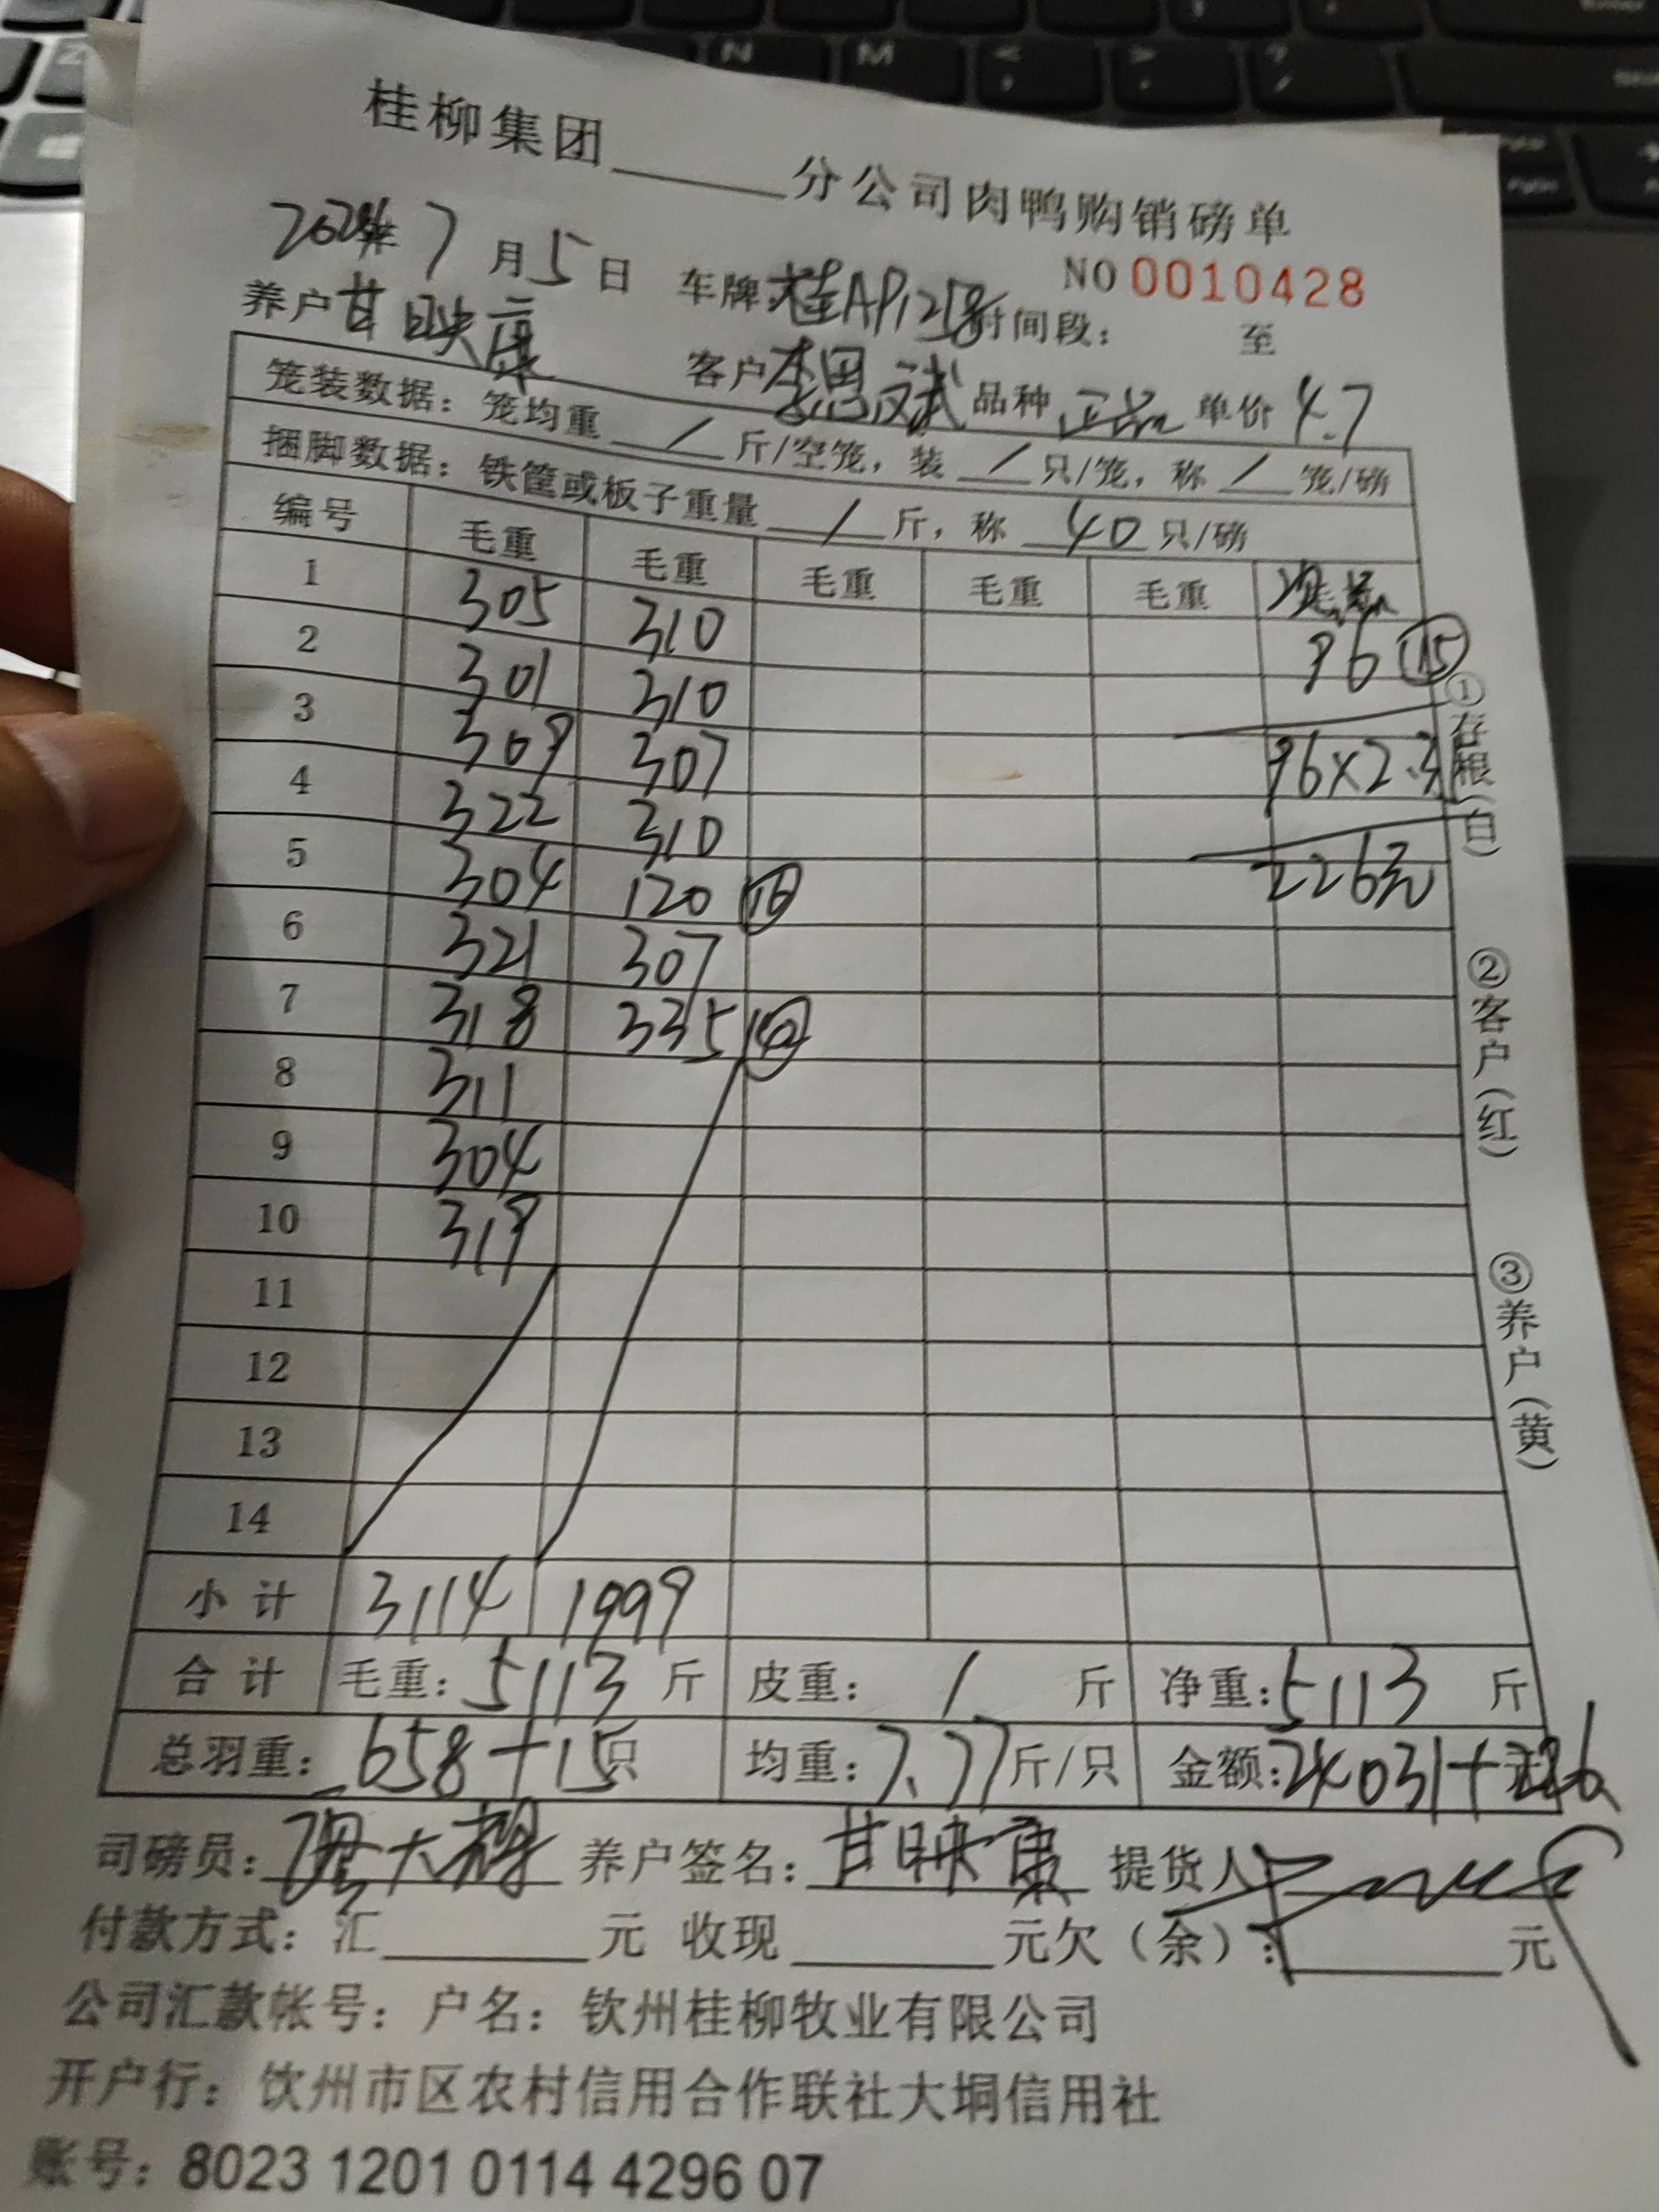 桂柳集团______分公司肉鸭购销磅单
2024年7月5日 车牌:桂AP1258 NO 0010428
养户 甘映康 时间段: 至
客户 李思斌 品种 正品 单价 4.7
笼装数据：笼均重 / 斤/空笼，装 / 只/笼，称 / 笼/磅
捆脚数据：铁筐或板子重量 / 斤，称 40 只/磅
编号 毛重 毛重 毛重 毛重 毛重
1 305 310 96 (15)
2 301 310
3 309 307 96×2.35
4 322 310
5 304 120 (16) 226元
6 321 307
7 318 335 (42)
8 311
9 304
10 319
11
12
13
14
小计 3114 1999
合计 毛重：5113 斤 皮重： / 斤 净重：5113 斤
总羽重：658+15只 均重：7.77斤/只 金额:24031+226
司磅员： 养户签名：甘映康 提货人
付款方式：汇______元 收现______元欠（余）：______元
公司汇款帐号：户名：钦州桂柳牧业有限公司
开户行：饮州市区农村信用合作联社大垌信用社
账号：8023 1201 0114 4296 07
①存根（白）
②客户（红）
③养户（黄）